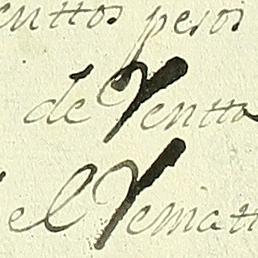 enttos pesos
de Yentto
el Yematt